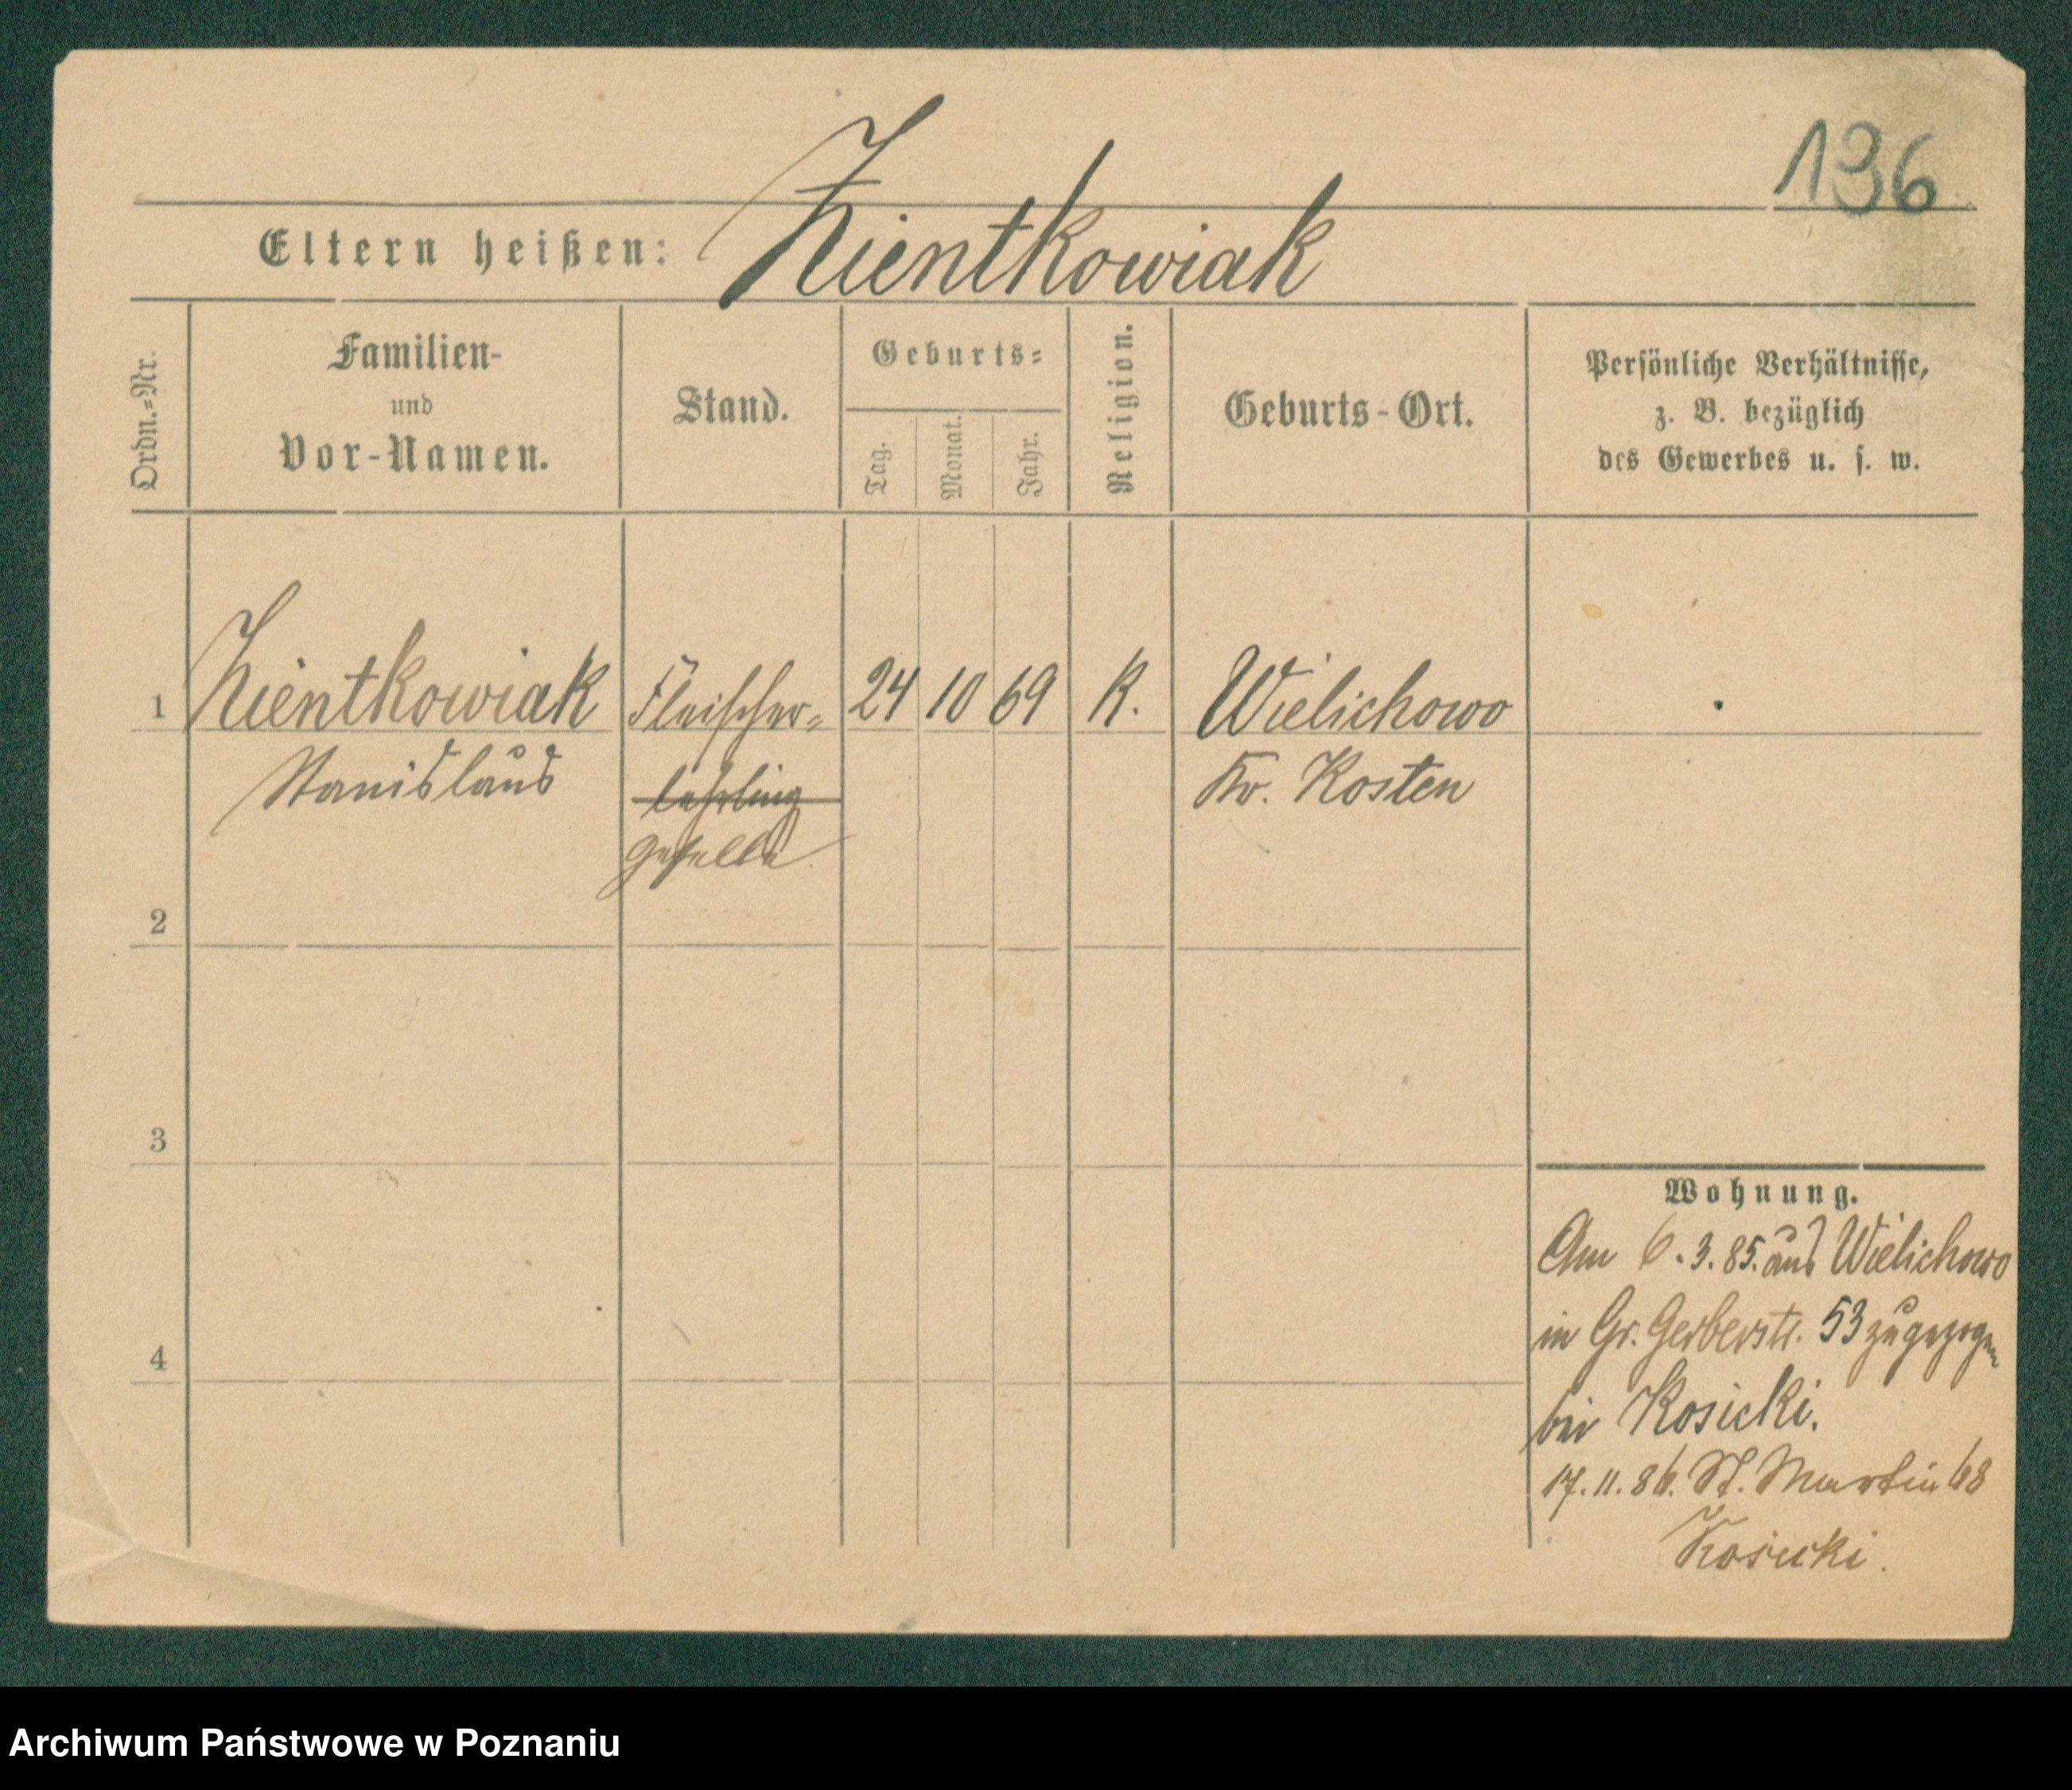 136
Eltern heißen: Zientkowiak
Ordn.=Nr.
Familien-
und
Vor-Namen.
Stand.
Geburts=
Tag.
Monat.
Jahr.
Religion.
Geburts-Ort.
Persönliche Verhältnisse,
z. B. bezüglich
des Gewerbes u. s. w.
1 Zientkowiak Fleischer= 24 10 69 K. Wielichowo
Stanislaus lehrling Kr. Kosten
geselle
2
3
4
Wohnung.
Am 6.3.85. aus Wielichowo
in Gr. Gerberstr. 53 zugezogen
bei Kosicki.
17.11.86. St. Martin 68
Kosicki.
Archiwum Państwowe w Poznaniu